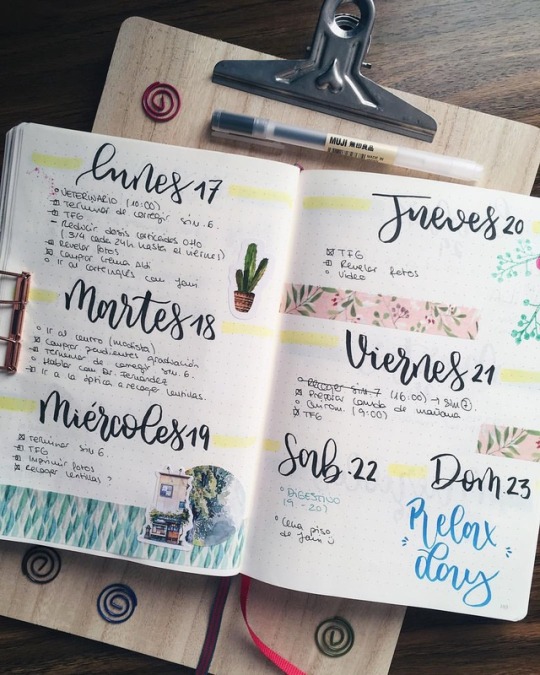 MUJI
Lunes 17
VETERINARIO (10:00)
Terminar de corregir sim. 6.
TFG
Reducir dosis corticoides Otto
(3/4 cada 24h hasta el viernes)
Revelar fotos
Comprar crema Aldi
Ir al corteinglés con
Martes 18
Ir al centro (modista)
Comprar pendientes graduación
Terminar de corregir sim. 6.
Hablar con Dr. Fernández
Ir a la óptica a recoger lentillas.
Miércoles 19
Terminar sim 6.
TFG
Imprimir fotos
Recoger lentillas ?
Jueves 20
TFG
Revelar fotos
Video
Viernes 21
Recoger sim 7 (16:00) → Sim
Preparar comida de mañana
(9:00)
TFG
Sab. 22
DIGESTIVO
(9-20)
Cena piso
de
Dom. 23
Relax
day